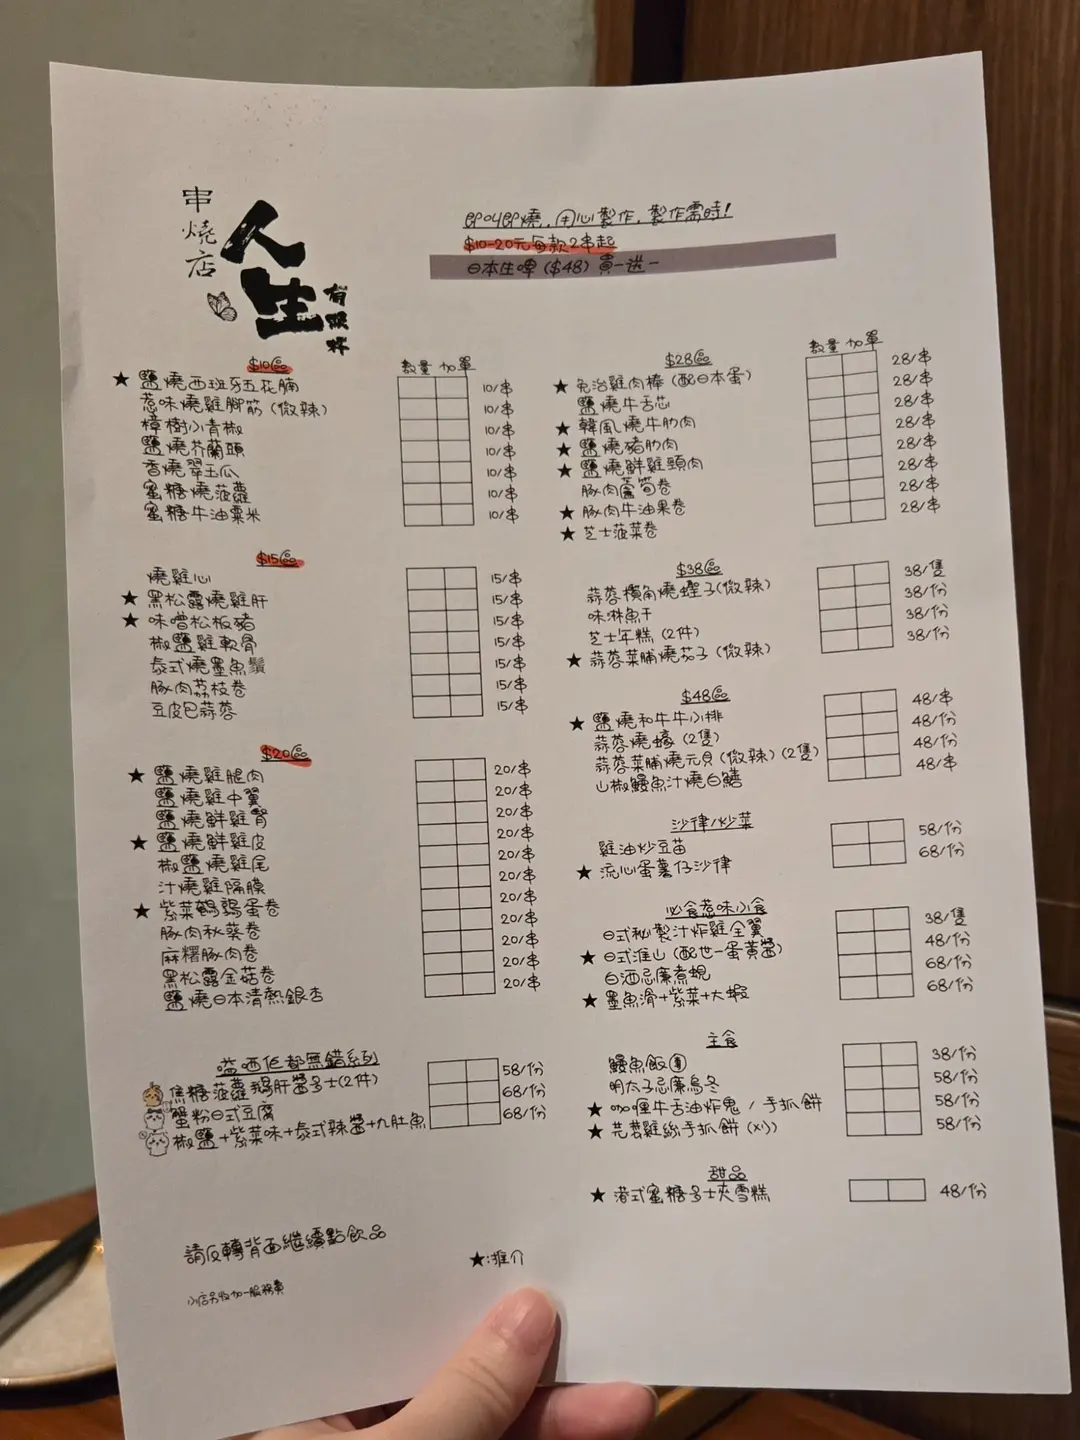 串燒店
人生
有限串
即叫即燒，用心製作，製作需時！
$10-20元每款2串起
日本生啤 ($48) 買一送一
$10區
數量 加單
★ 鹽燒西班牙五花腩 10/串
惹味燒雞腳筋 (微辣) 10/串
樟樹小青椒 10/串
鹽燒芥蘭頭 10/串
香燒翠玉瓜 10/串
蜜糖燒菠蘿 10/串
蜜糖牛油粟米 10/串
$15區
燒雞心 15/串
★ 黑松露燒雞肝 15/串
★ 味噌松板豬 15/串
椒鹽雞軟骨 15/串
泰式燒墨魚鬚 15/串
豚肉荔枝卷 15/串
豆皮包蒜蓉 15/串
$20區
★ 鹽燒雞腿肉 20/串
鹽燒雞中翼 20/串
鹽燒鮮雞腎 20/串
★ 鹽燒鮮雞皮 20/串
椒鹽燒雞尾 20/串
汁燒雞隔膜 20/串
★ 紫菜鵪鶉蛋卷 20/串
豚肉秋葵卷 20/串
麻糬豚肉卷 20/串
黑松露金菇卷 20/串
鹽燒日本清熱銀杏 20/串
嗌晒佢都無錯系列
焦糖菠蘿鵝肝醬多士(2件) 58/份
蟹粉日式豆腐 68/份
椒鹽+紫菜味+泰式辣醬+九肚魚 68/份
請反轉背面繼續點飲品
小店另收加一服務費
$28區
數量 加單
★ 免治雞肉棒 (配日本蛋) 28/串
鹽燒牛舌芯 28/串
★ 韓風燒牛肋肉 28/串
★ 鹽燒豬肋肉 28/串
★ 鹽燒鮮雞頸肉 28/串
豚肉蘆筍卷 28/串
★ 豚肉牛油果卷 28/串
★ 芝士菠菜卷 28/串
$38區
蒜蓉欖角燒蟶子(微辣) 38/隻
味淋魚干 38/份
芝士年糕 (2件) 38/份
★ 蒜蓉菜脯燒茄子 (微辣) 38/份
$48區
★ 鹽燒和牛牛小排 48/串
蒜蓉燒蠔 (2隻) 48/份
蒜蓉菜脯燒元貝 (微辣) (2隻) 48/份
山椒鰻魚汁燒白鱔 48/串
沙律/炒菜
雞油炒豆苗 58/份
★ 流心蛋薯仔沙律 68/份
必食惹味小食
日式秘製汁炸雞全翼 38/隻
★ 日式淮山 (配世一蛋黃醬) 48/份
白酒忌廉煮蜆 68/份
★ 墨魚滑+紫菜+大蝦 68/份
主食
鰻魚飯 38/份
明太子忌廉烏冬 58/份
★ 咖喱牛舌油炸鬼 / 手抓餅 58/份
★ 芫荽雞絲手抓餅 (X1) 58/份
甜品
★ 港式蜜糖多士夾雪糕 48/份
★:推介